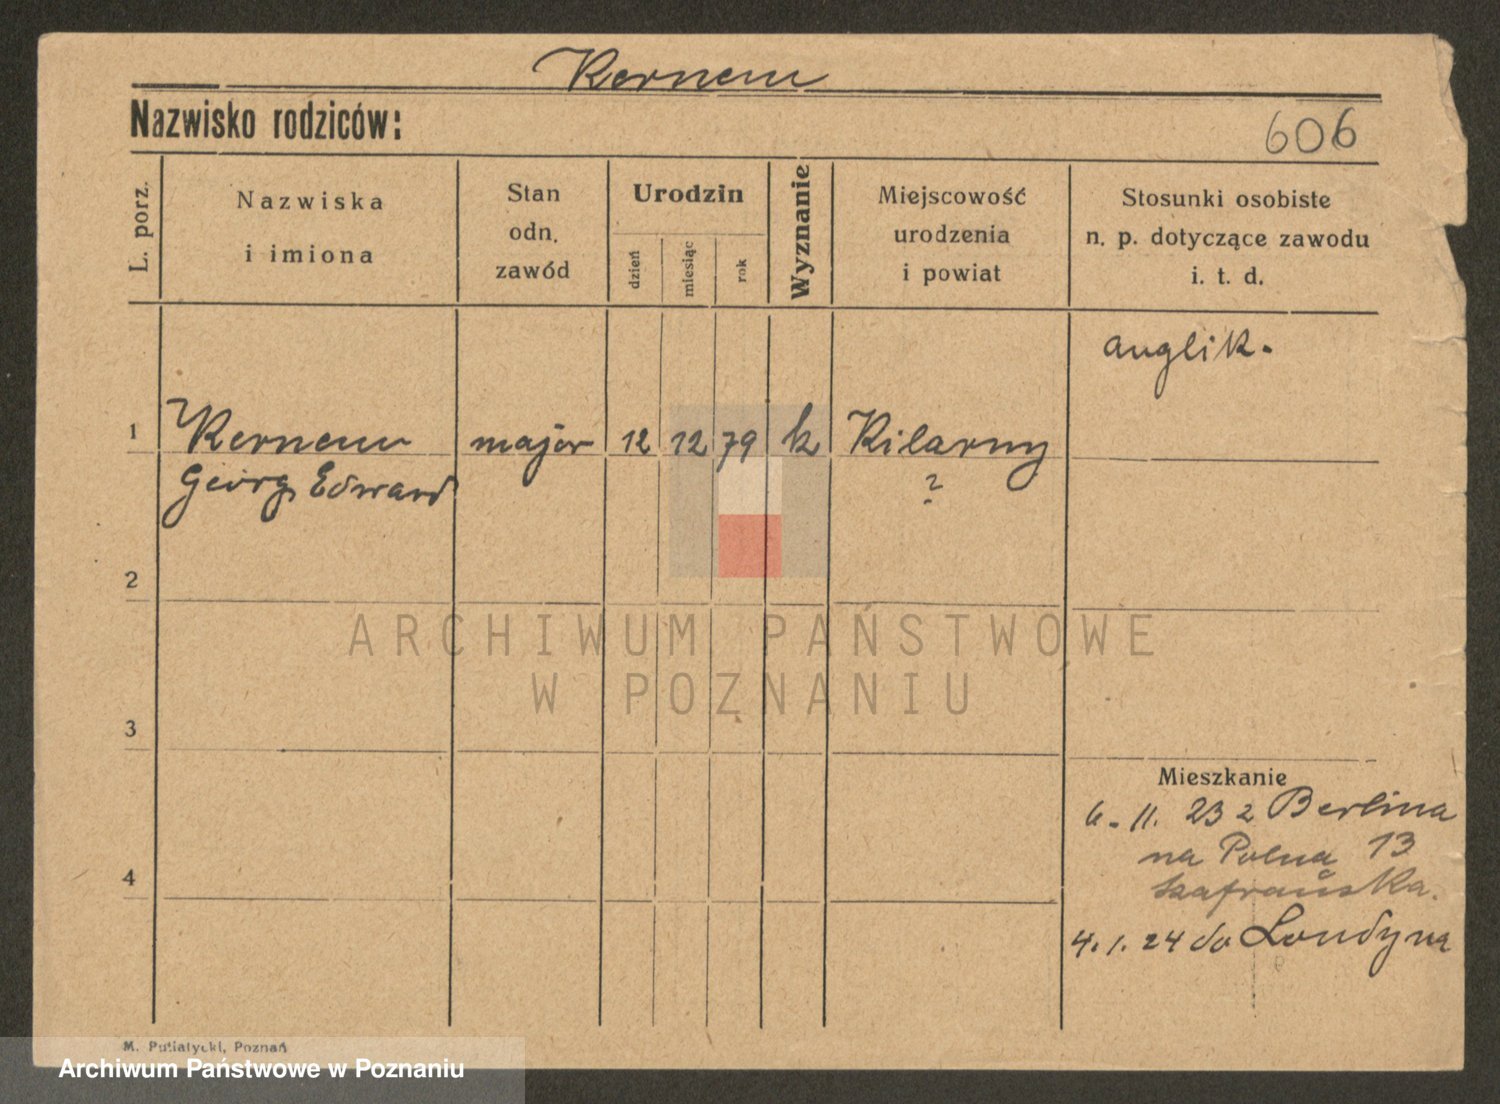 Kernenu
Nazwisko rodziców:
606
L. porz.
Nazwiska
i imiona
Stan
odn.
zawód
Urodzin
dzień
miesiąc
rok
Wyznanie
Miejscowość
urodzenia
i powiat
Stosunki osobiste
n. p. dotyczące zawodu
i. t. d.
anglik.
1 Kernenu major 12 12 79 k Kilarny
Georg Edward ?
2
ARCHIWUM PAŃSTWOWE
W POZNANIU
3
Mieszkanie
6. 11. 23 z Berlina
na Polna 13
4
4. 1. 24 do Londyna
M. Putiatycki, Poznań
Archiwum Państwowe w Poznaniu